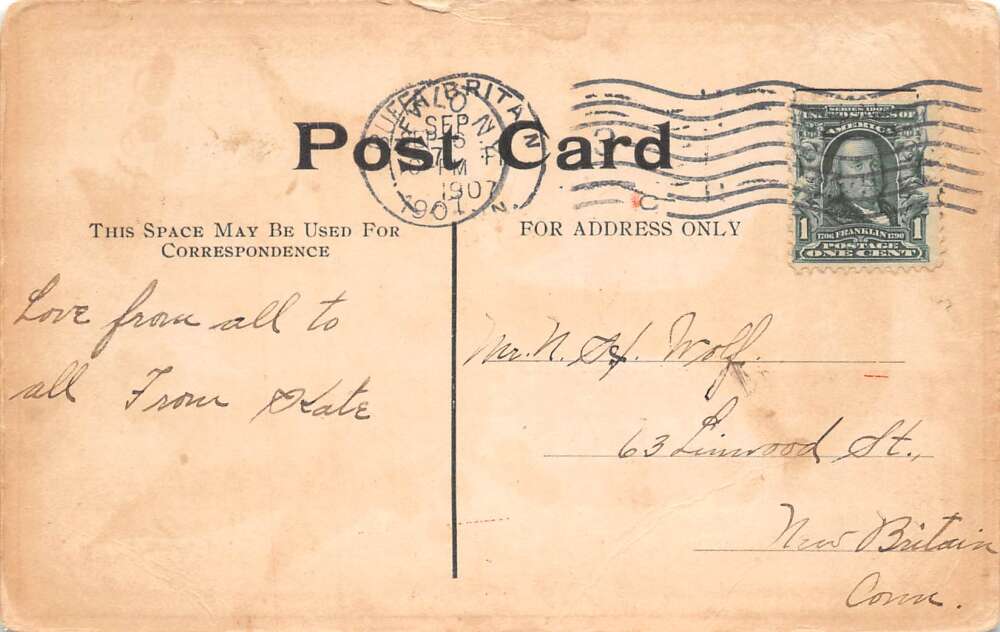 Post Card
THIS SPACE MAY BE USED FOR
CORRESPONDENCE
FOR ADDRESS ONLY
SEP
1907
SERIES 1902
AMERICA
1706 FRANKLIN 1790
1 POSTAGE 1
ONE CENT
Love from all to
all From Kate
Mr. N. H. Wolf.
63 Linwood St.,
New Britain
Conn.